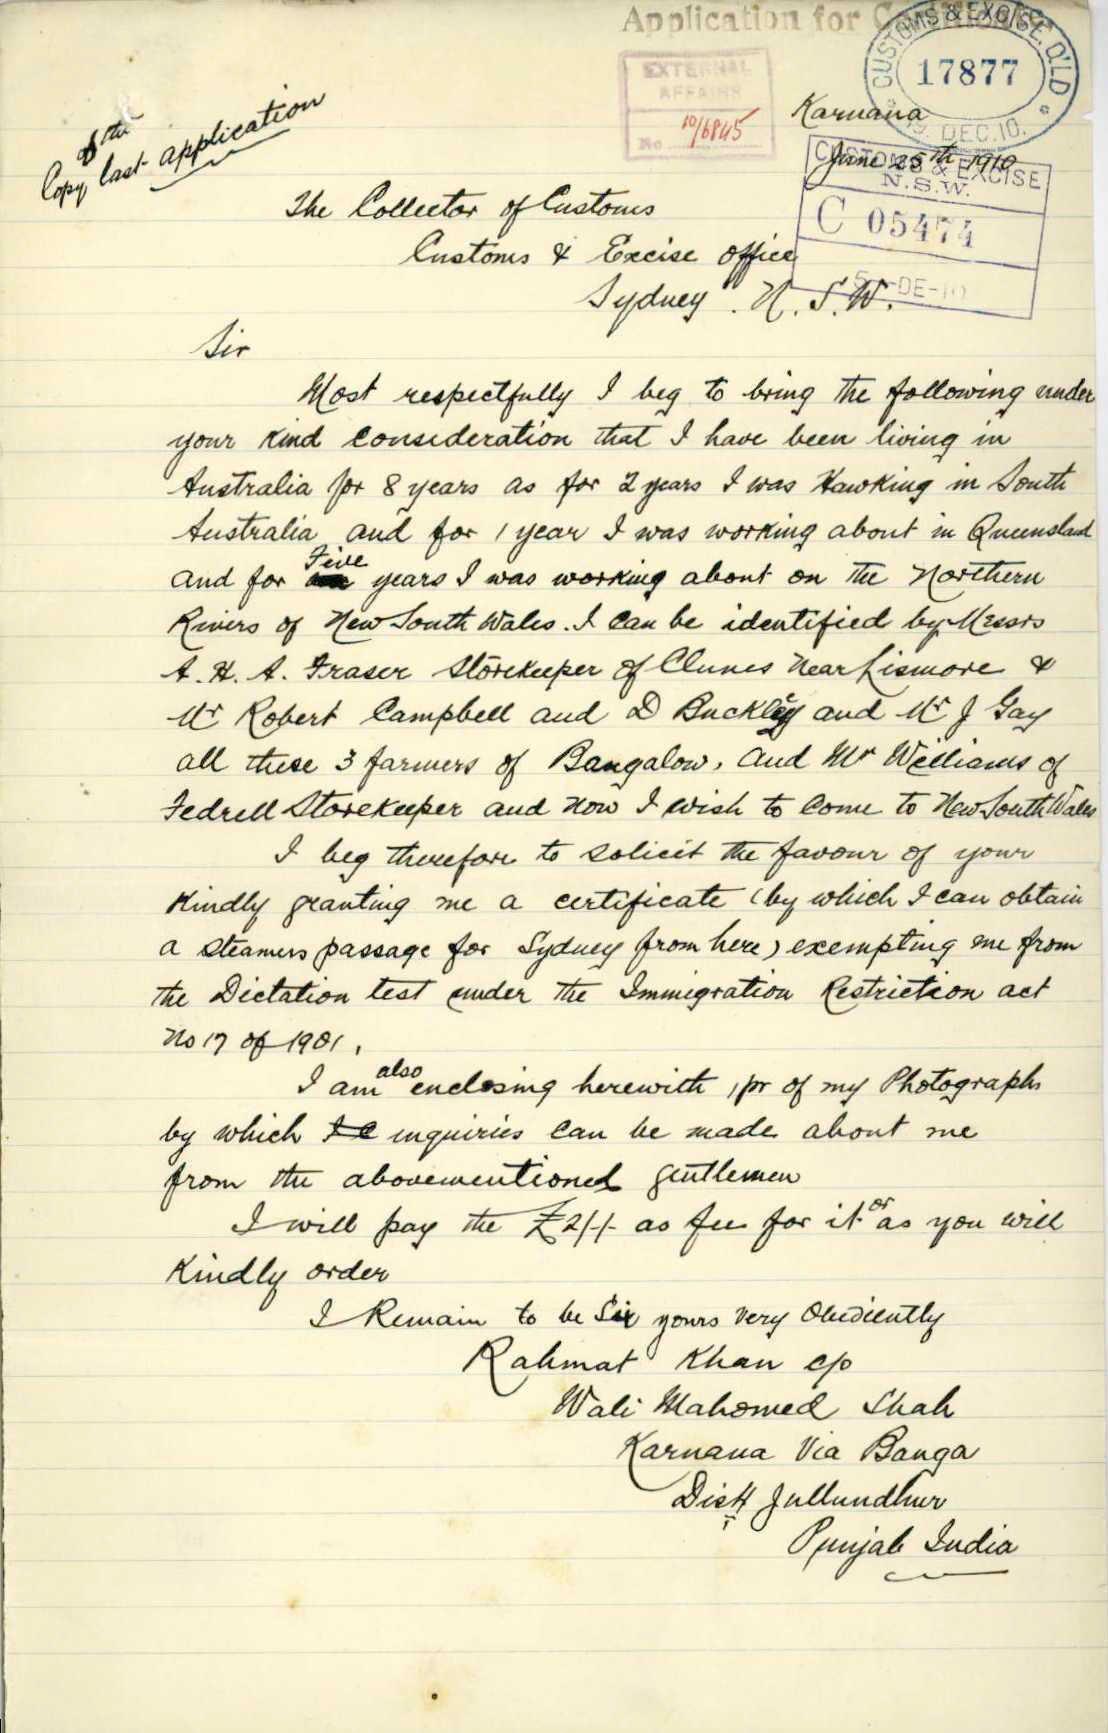 Application for
CUSTOMS & EXCISE. Q'LD
17877
9. DEC. 10.
EXTERNAL
AFFAIRS
No 10/6845
Copy of the last application
Karnana
June 25th 1910
CUSTOMS & EXCISE
N.S.W.
C 05474
5 - DE - 10
The Collector of Customs
Customs & Excise office
Sydney . N. S. W.
Sir
Most respectfully I beg to bring the following under
your kind consideration that I have been living in
Australia for 8 years as for 2 years I was Hawking in South
Australia and for 1 year I was working about in Queensland
and for Five years I was working about on the Northern
Rivers of New South Wales. I can be identified by Messrs
A. H. A. Fraser Storekeeper of Clunes Near Lismore &
Mr Robert Campbell and D Buckley and Mr J Gay
all these 3 farmers of Bangalow, and Mr Williams of
Fedrell Storekeeper and now I wish to come to New South Wales
I beg therefore to solicit the favour of your
kindly granting me a certificate (by which I can obtain
a steamers passage for Sydney from here) exempting me from
the Dictation test under the Immigration Restriction act
No 17 of 1901.
I am also enclosing herewith 1 pr of my Photographs
by which I c inquiries can be made about me
from the abovementioned gentlemen
I will pay the £2/-/- as fee for it or as you will
kindly order
I Remain to be Sir yours very Obediently
Rahmat Khan c/o
Wali Mahomed Shah
Karnana Via Banga
Distt Jullundhur
Punjab India